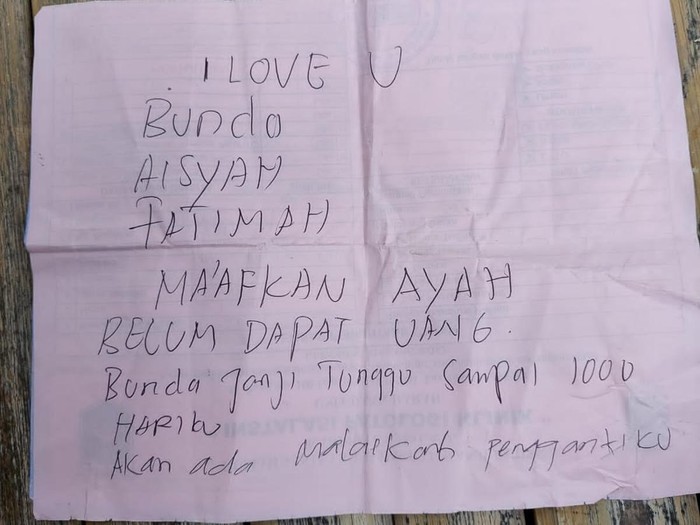 I LOVE U
Bunda
AISYAH
FATIMAH
MA'AFKAN AYAH
BELUM DAPAT UANG.
Bunda Janji Tunggu Sampai 1000
HARIKU
Akan ada Malaekat penggantiku